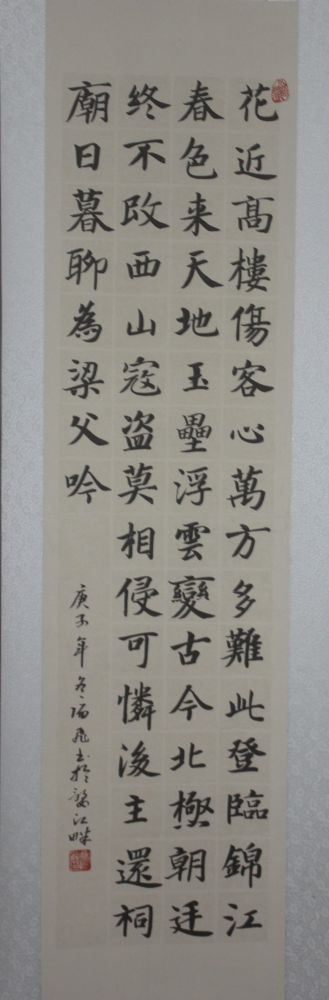 花近高樓傷客心萬方多難此登臨錦江
春色来天地玉壘浮雲變古今北極朝廷
終不改西山寇盗莫相侵可憐後主還祠
廟日暮聊為梁父吟
庚子年冬瑞飛書於鷺江畔